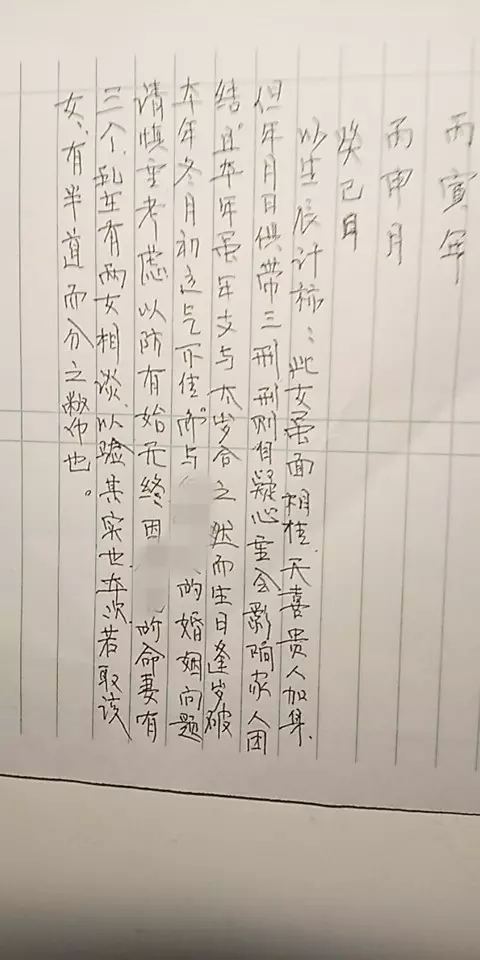 丙寅年
丙申月
癸巳日
以生辰计标：此女虽面相佳，天喜贵人加集，
但年月日俱带三刑，刑则有疑心重会影响家人团
结，且本年虽年支与太岁合之，然而生日逢岁破
本年冬月初运气不佳，而与的婚姻问题
请慎重考虑以防有始无终因所命妻有
三个，现在有两女相谈，以验其实也，本次若取该
女，有半道而分之弊也。